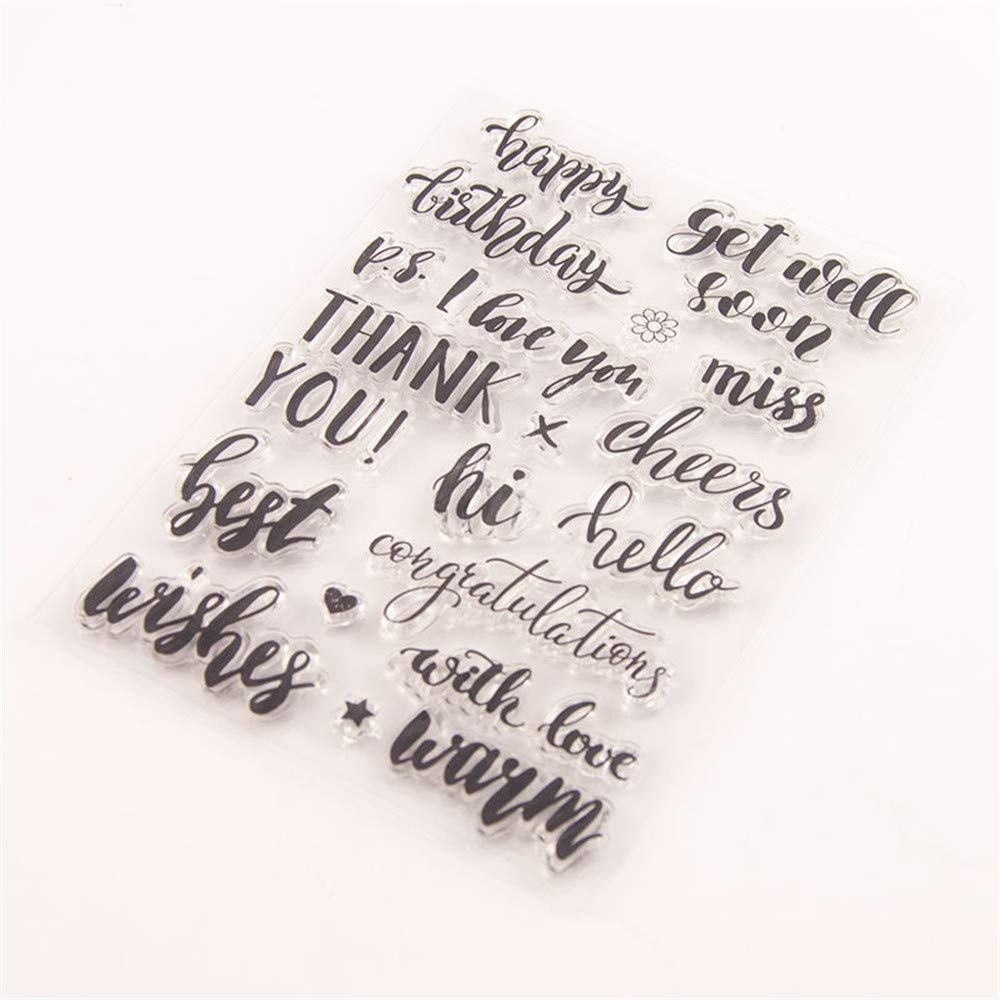 happy
birthday
p.s. I love you
THANK
YOU!
best
wishes
get well
soon
miss
x
cheers
hi
hello
congratulations
with love
warm